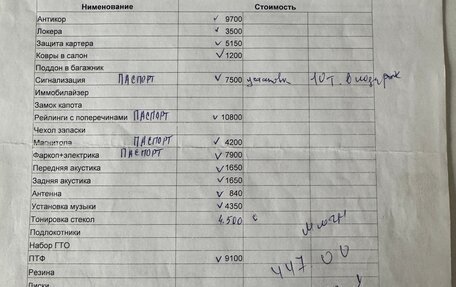 Наименование Стоимость
Антикор ✓ 9700
Локера ✓ 3500
Защита картера ✓ 5150
Ковры в салон ✓ 1200
Поддон в багажник
Сигнализация ПАСПОРТ ✓ 7500 установка 10 т. в подарок
Иммобилайзер
Замок капота
Рейлинги с поперечинами ПАСПОРТ ✓ 10800
Чехол запаски
Магнитола ПАСПОРТ ✓ 4200
Фаркоп+электрика ПАСПОРТ ✓ 7900
Передняя акустика ✓ 1650
Задняя акустика ✓ 1650
Антенна ✓ 840
Установка музыки ✓ 4350
Тонировка стекол 4.500
Подлокотники
Набор ГТО
ПТФ ✓ 9100
447.00
Резина
Диски